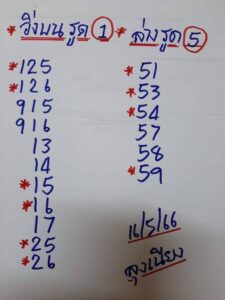 * วิ่งบน รูด 1
*125
*126
915
916
13
14
*15
*16
17
*25
*26
* ล่าง รูด 5
*51
*53
*54
57
58
*59
16/5/66
ลุงเนียง